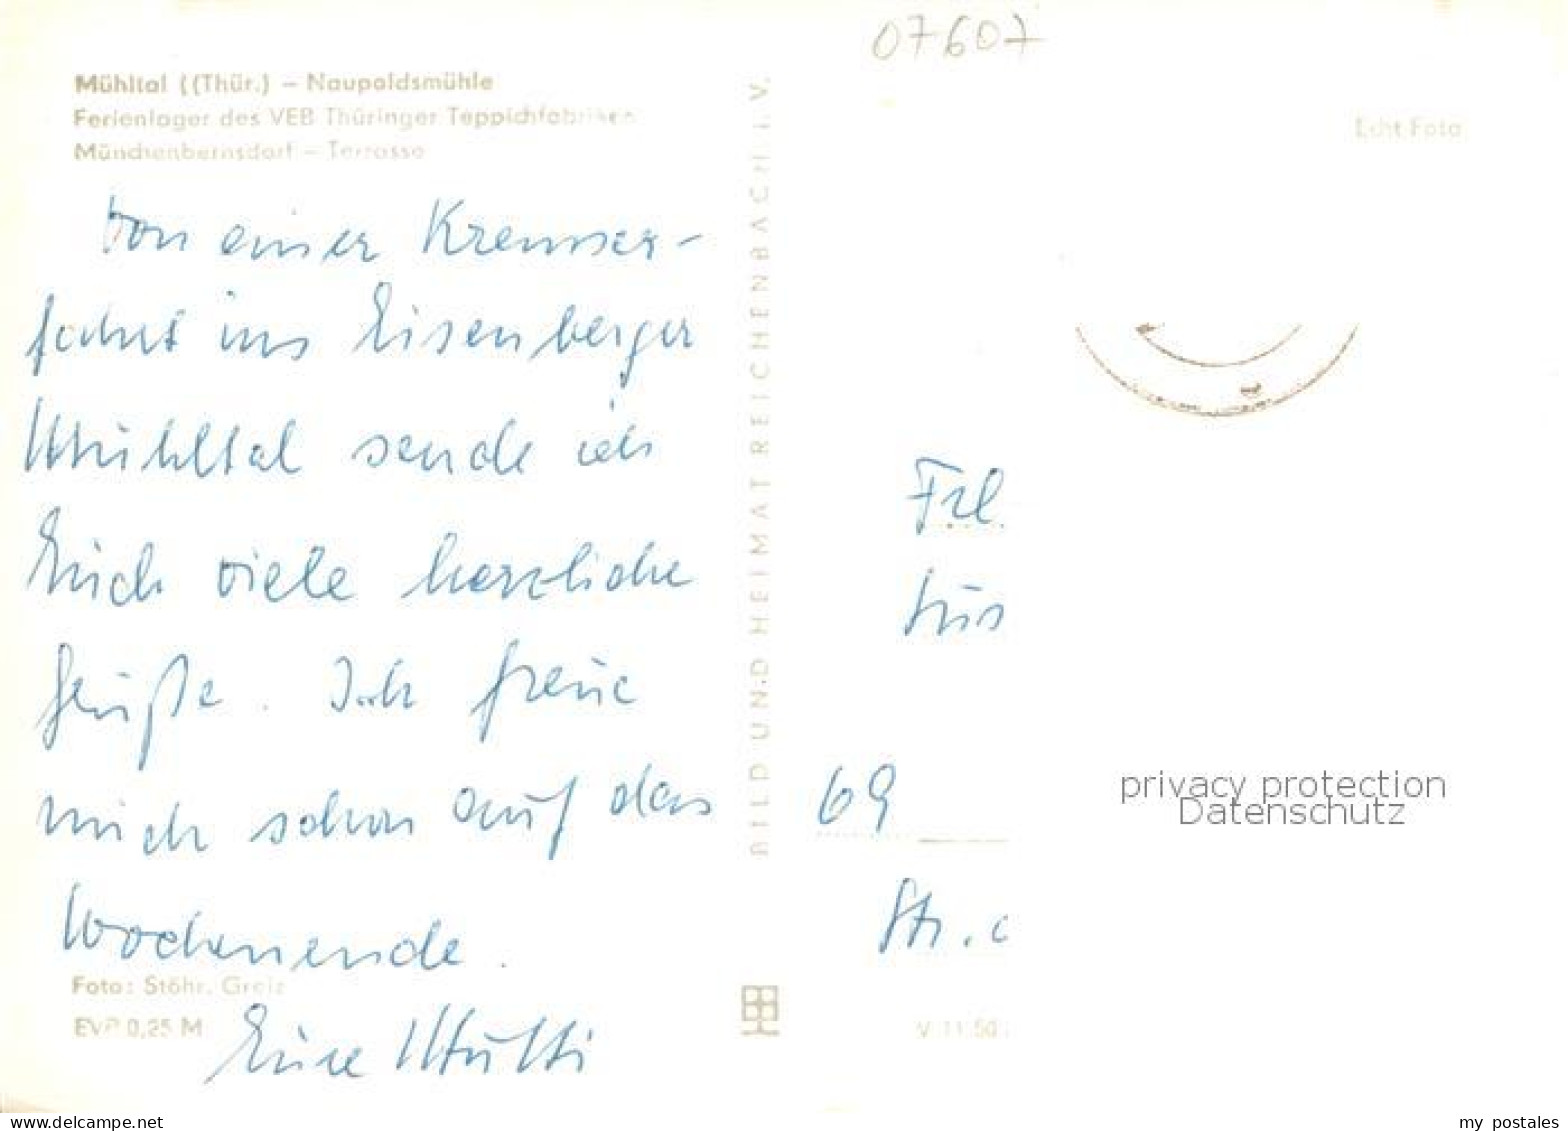 07607
Mühltal ((Thür.) – Naupoldsmühle
Ferienlager des VEB Thüringer Teppichfabriken
Münchenbernsdorf – Terrasse
Echt Foto
Von einer Kremser-
fahrt ins Eisenberger
Mühltal sende ich
Euch viele herzliche
Grüße. Ich freue
mich schon auf das
Wochenende.
Eure Mutti
Foto: Stöhr, Greiz
EVP 0,25 M
BILD UND HEIMAT REICHENBACH i. V.
Frl.
69
Str.
V 11 50
privacy protection
Datenschutz
my postales